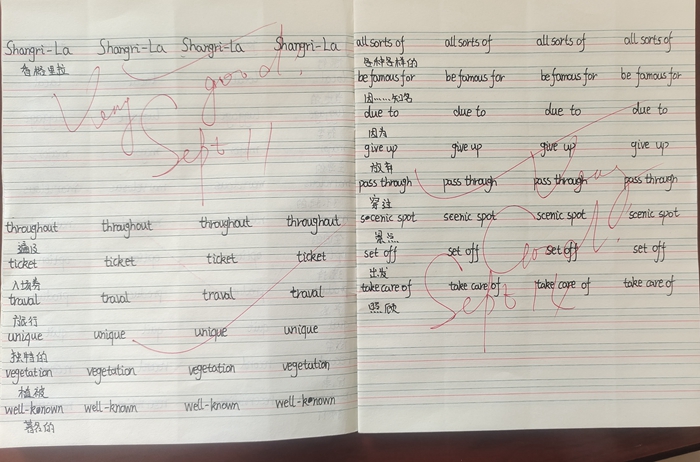 Shangri-La Shangri-La Shangri-La Shangri-La
香格里拉
Very good!
Sept 11
throughout throughout throughout throughout
遍及
ticket ticket ticket ticket
入场券
traval traval traval traval
旅行
unique unique unique unique
独特的
vegetation vegetation vegetation vegetation
植被
well-known well-known well-known well-known
著名的
all sorts of all sorts of all sorts of all sorts of
各种各样的
be famous for be famous for be famous for be famous for
因……知名
due to due to due to due to
因为
give up give up give up give up
放弃
pass through pass through pass through pass through
穿过
scenic spot seenic spot scenic spot scenic spot
景点
set off set off set off set off
出发
take care of take care of take care of take care of
照顾
Very Good!
Sept 14